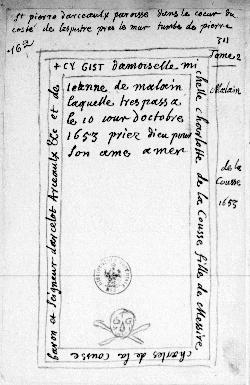 st pierre d'arceaulx paroisse dans le cœur du
costé de lespitre pres le mur tumbe de pierre
311
162
Tome 2
+ CY GIST damoiselle mi
chelle charlotte de la Cousse filles de Messire
charles de la Cousse
baron et Seigneur darcelot Arceaulx &c et de
ieanne de malain
laquelle trespassa
le 10 iour doctobre
1653 priez dieu pour
son ame amen
Malain
de la
Cousse
1653